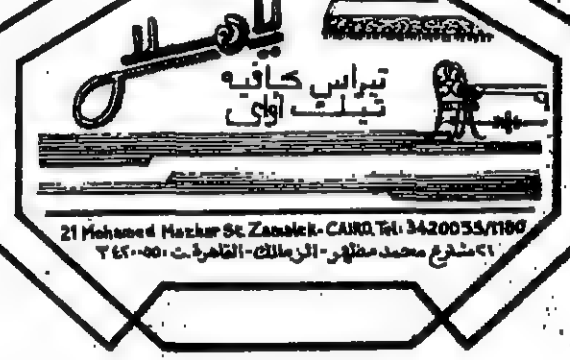 تيراس كافيه
تيك اواي
21 Mohamed Mazhar St. Zamalek-CAIRO, Tel: 3420055/1180
٢١ شارع محمد مظهر-الزمالك-القاهرة ت: